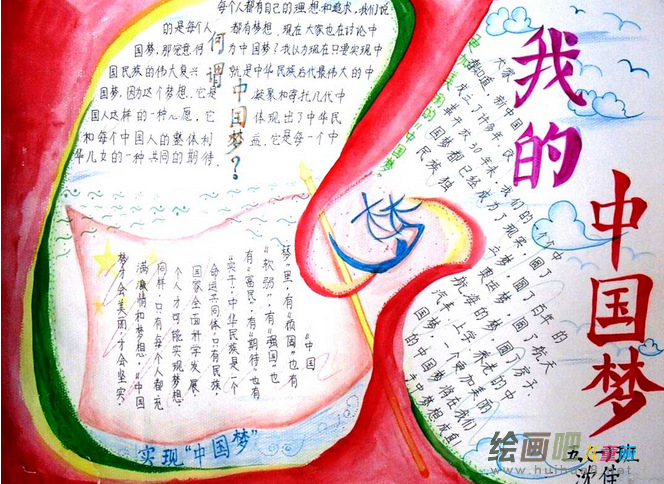 我的
中国梦
每个人都有自己的理想和追求,我们说
的是每个人都有梦想.现在大家也在讨论中
国梦,那究竟何为中国梦?我以为现在只要实现中
国民族的伟大复兴就是中华民族近代最伟大的中
国梦,因为这个梦想,它是凝聚和寄托几代中
国人这样的一种心愿,它体现出了中华民
和每个中国人的整体利益,它是每一个中
华儿女的一种共同的期待.
何谓中国梦?
大家知道,新中国
成立了许多年,改
革开放30年来,我们的
国梦都已经成为了现实,圆了
百年的
奥运梦,圆了航天
航海的梦,圆了房子.
汽车.上学.
国梦,一个更加美丽
的中国梦将在我们
手中梦想成真!
梦
"中国
梦"里,有"祯国"也有
"软弱",有"强国"也
有"富民",有"期待"也有
"实干".中华民族是一个
命运共同体,只有民族,
国家全面科学发展,
个人才可能实现梦想.
同样,只有每个人都充
满激情和梦想,"中国
梦"才会美丽,才会坚实.
实现"中国梦"
绘画吧
儿童班
沈佳